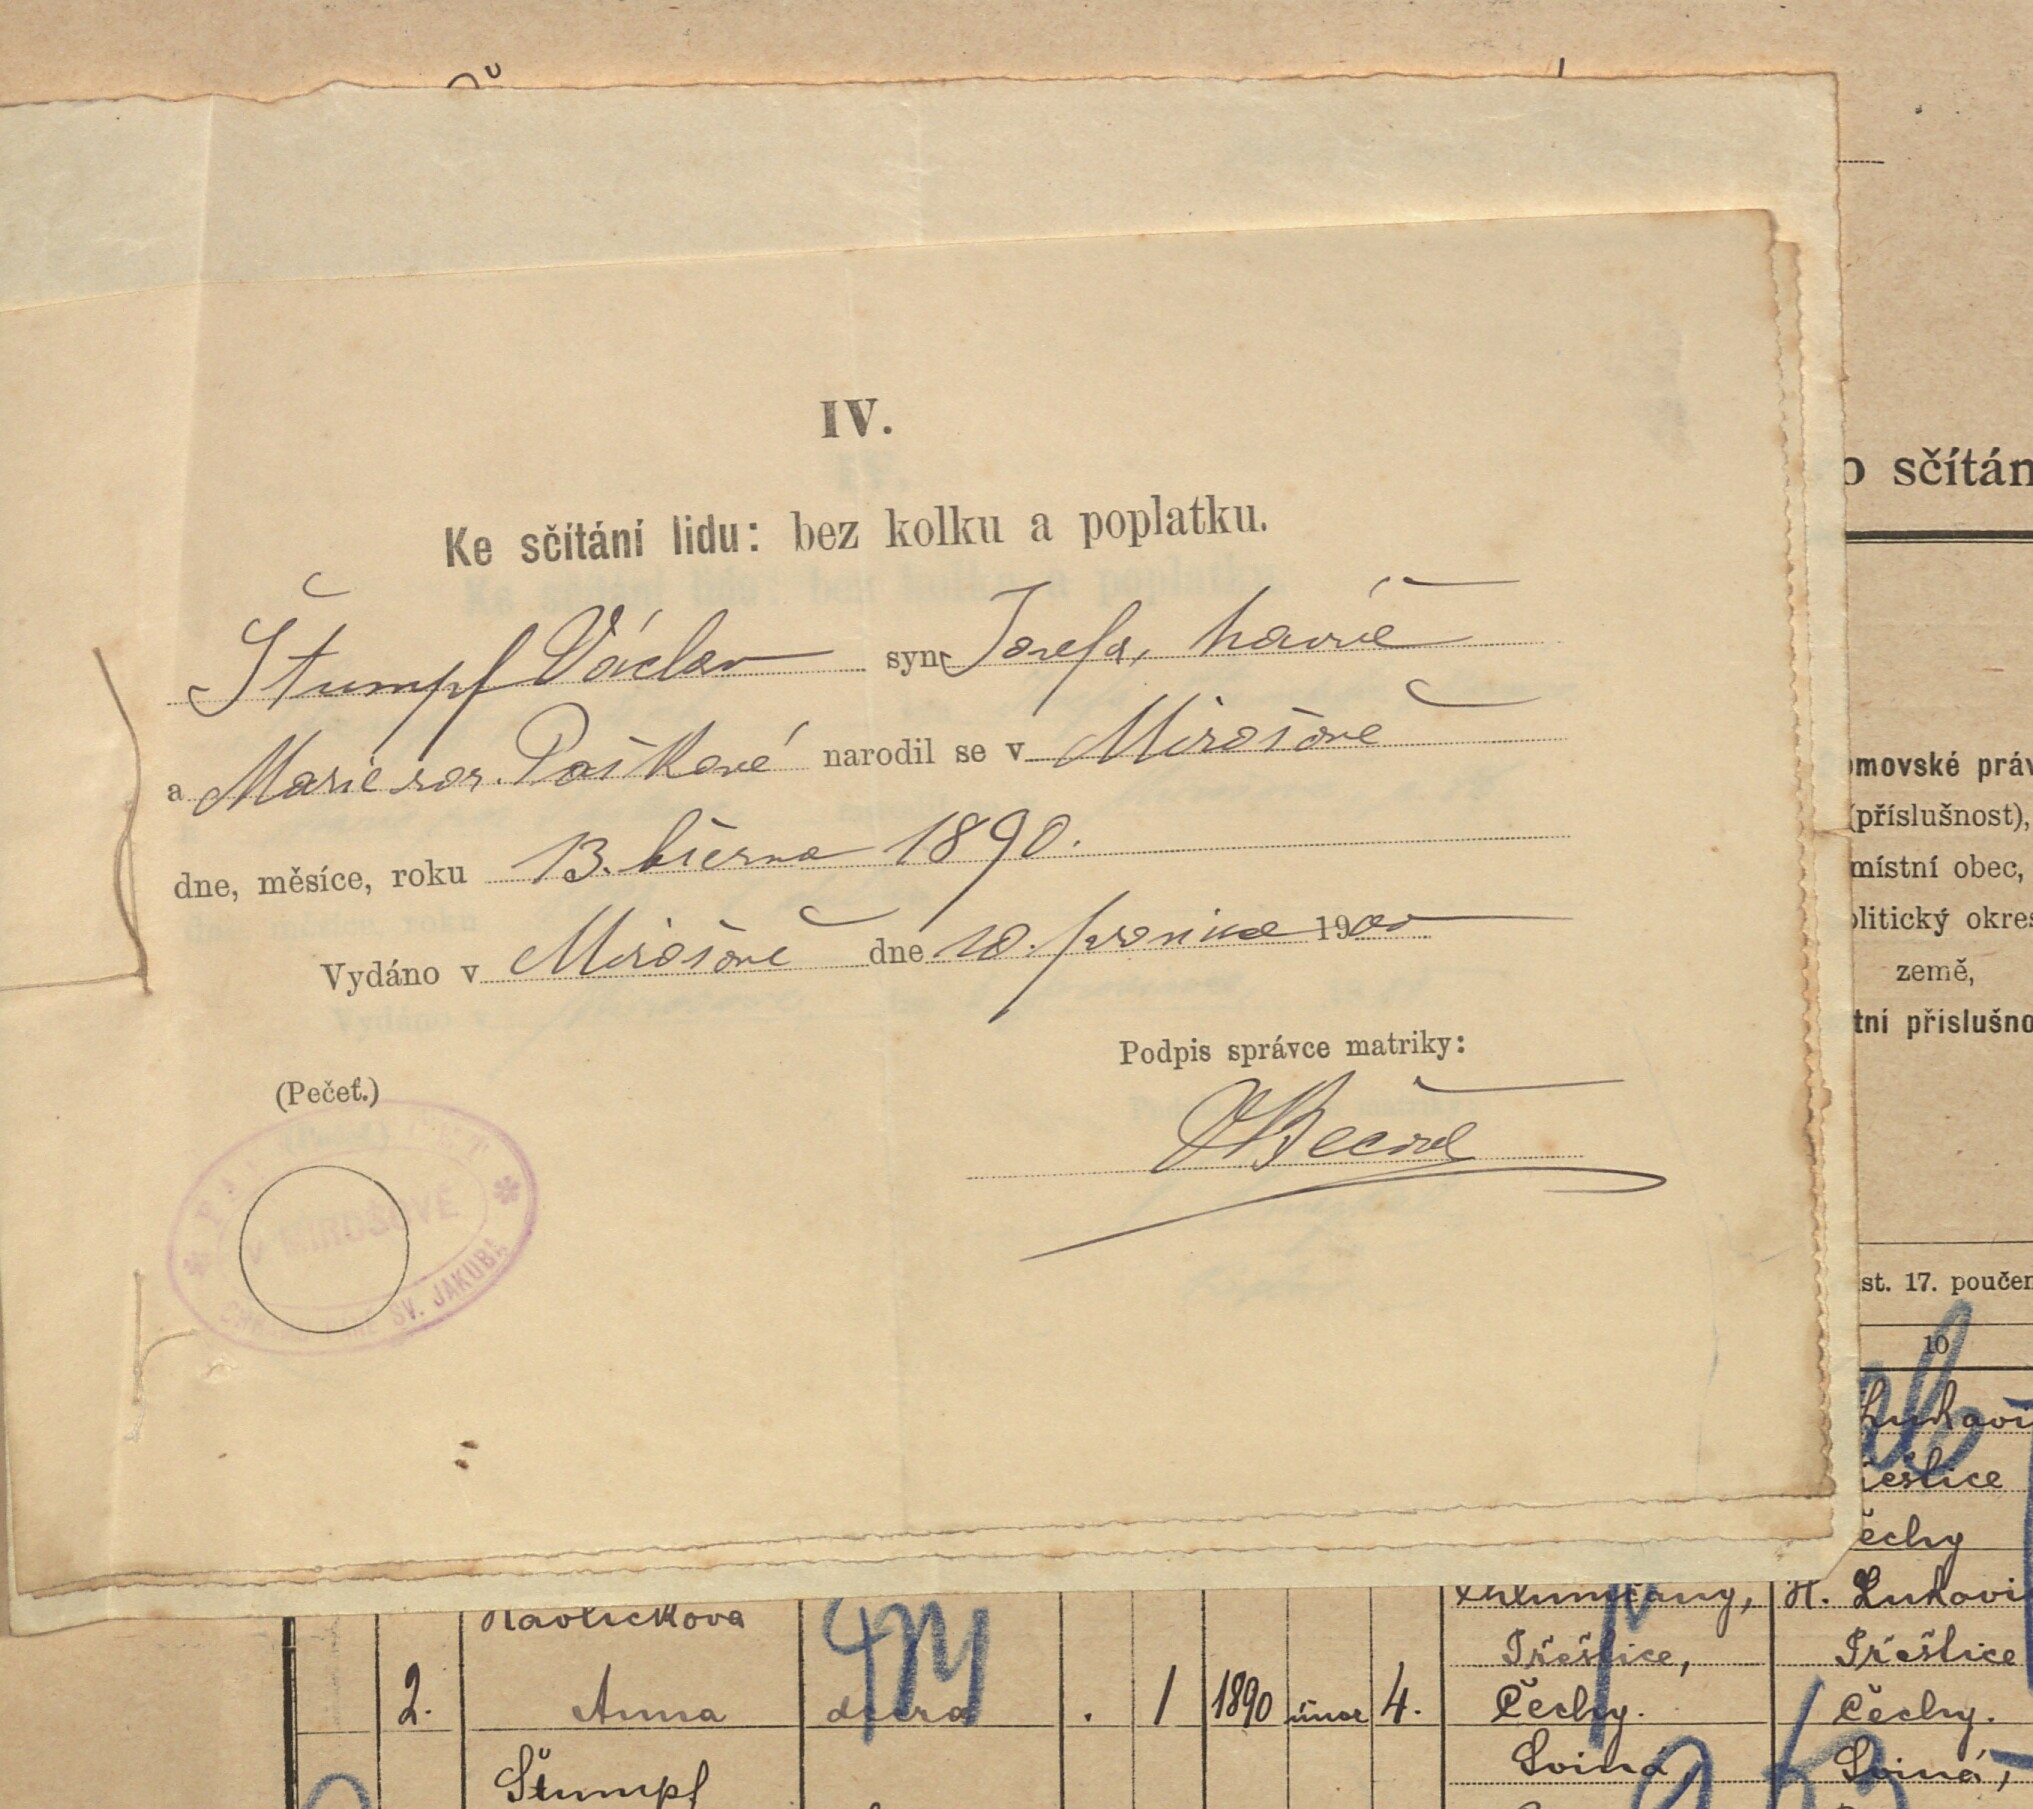 IV.
Ke sčítání lidu: bez kolku a poplatku.
Štumpf Václav syn Josefa, havíř
a Marie roz. Paškové narodil se v Mirošově
dne, měsíce, roku 13. března 1890.
Vydáno v Mirošově dne 10. prosince 1900
Podpis správce matriky:
(Pečeť.)
V MIROŠOVĚ
SV. JAKUBA
o sčítán
omovské práv
(příslušnost),
místní obec,
olitický okres
země,
tní příslušno
st. 17. poučen
10
ečhy
Havlíčkova
Chlumčany, H. Lukavi
Přeštice, Přeštice
2. Anna dcera . 1 1890 únor 4. Čechy. Čechy.
Štumpf Svina, Svina,